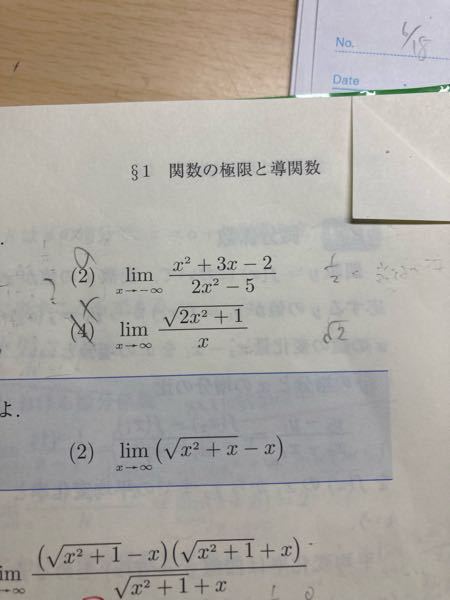 No. 6/18
Date
§1 関数の極限と導関数
(2) lim x→−∞ x² + 3x − 2 / 2x² − 5 1/2
(4) lim x→∞ √(2x² + 1) / x √2
よ.
(2) lim x→∞ (√(x² + x) − x)
im (√(x² + 1) − x)(√(x² + 1) + x) / √(x² + 1) + x